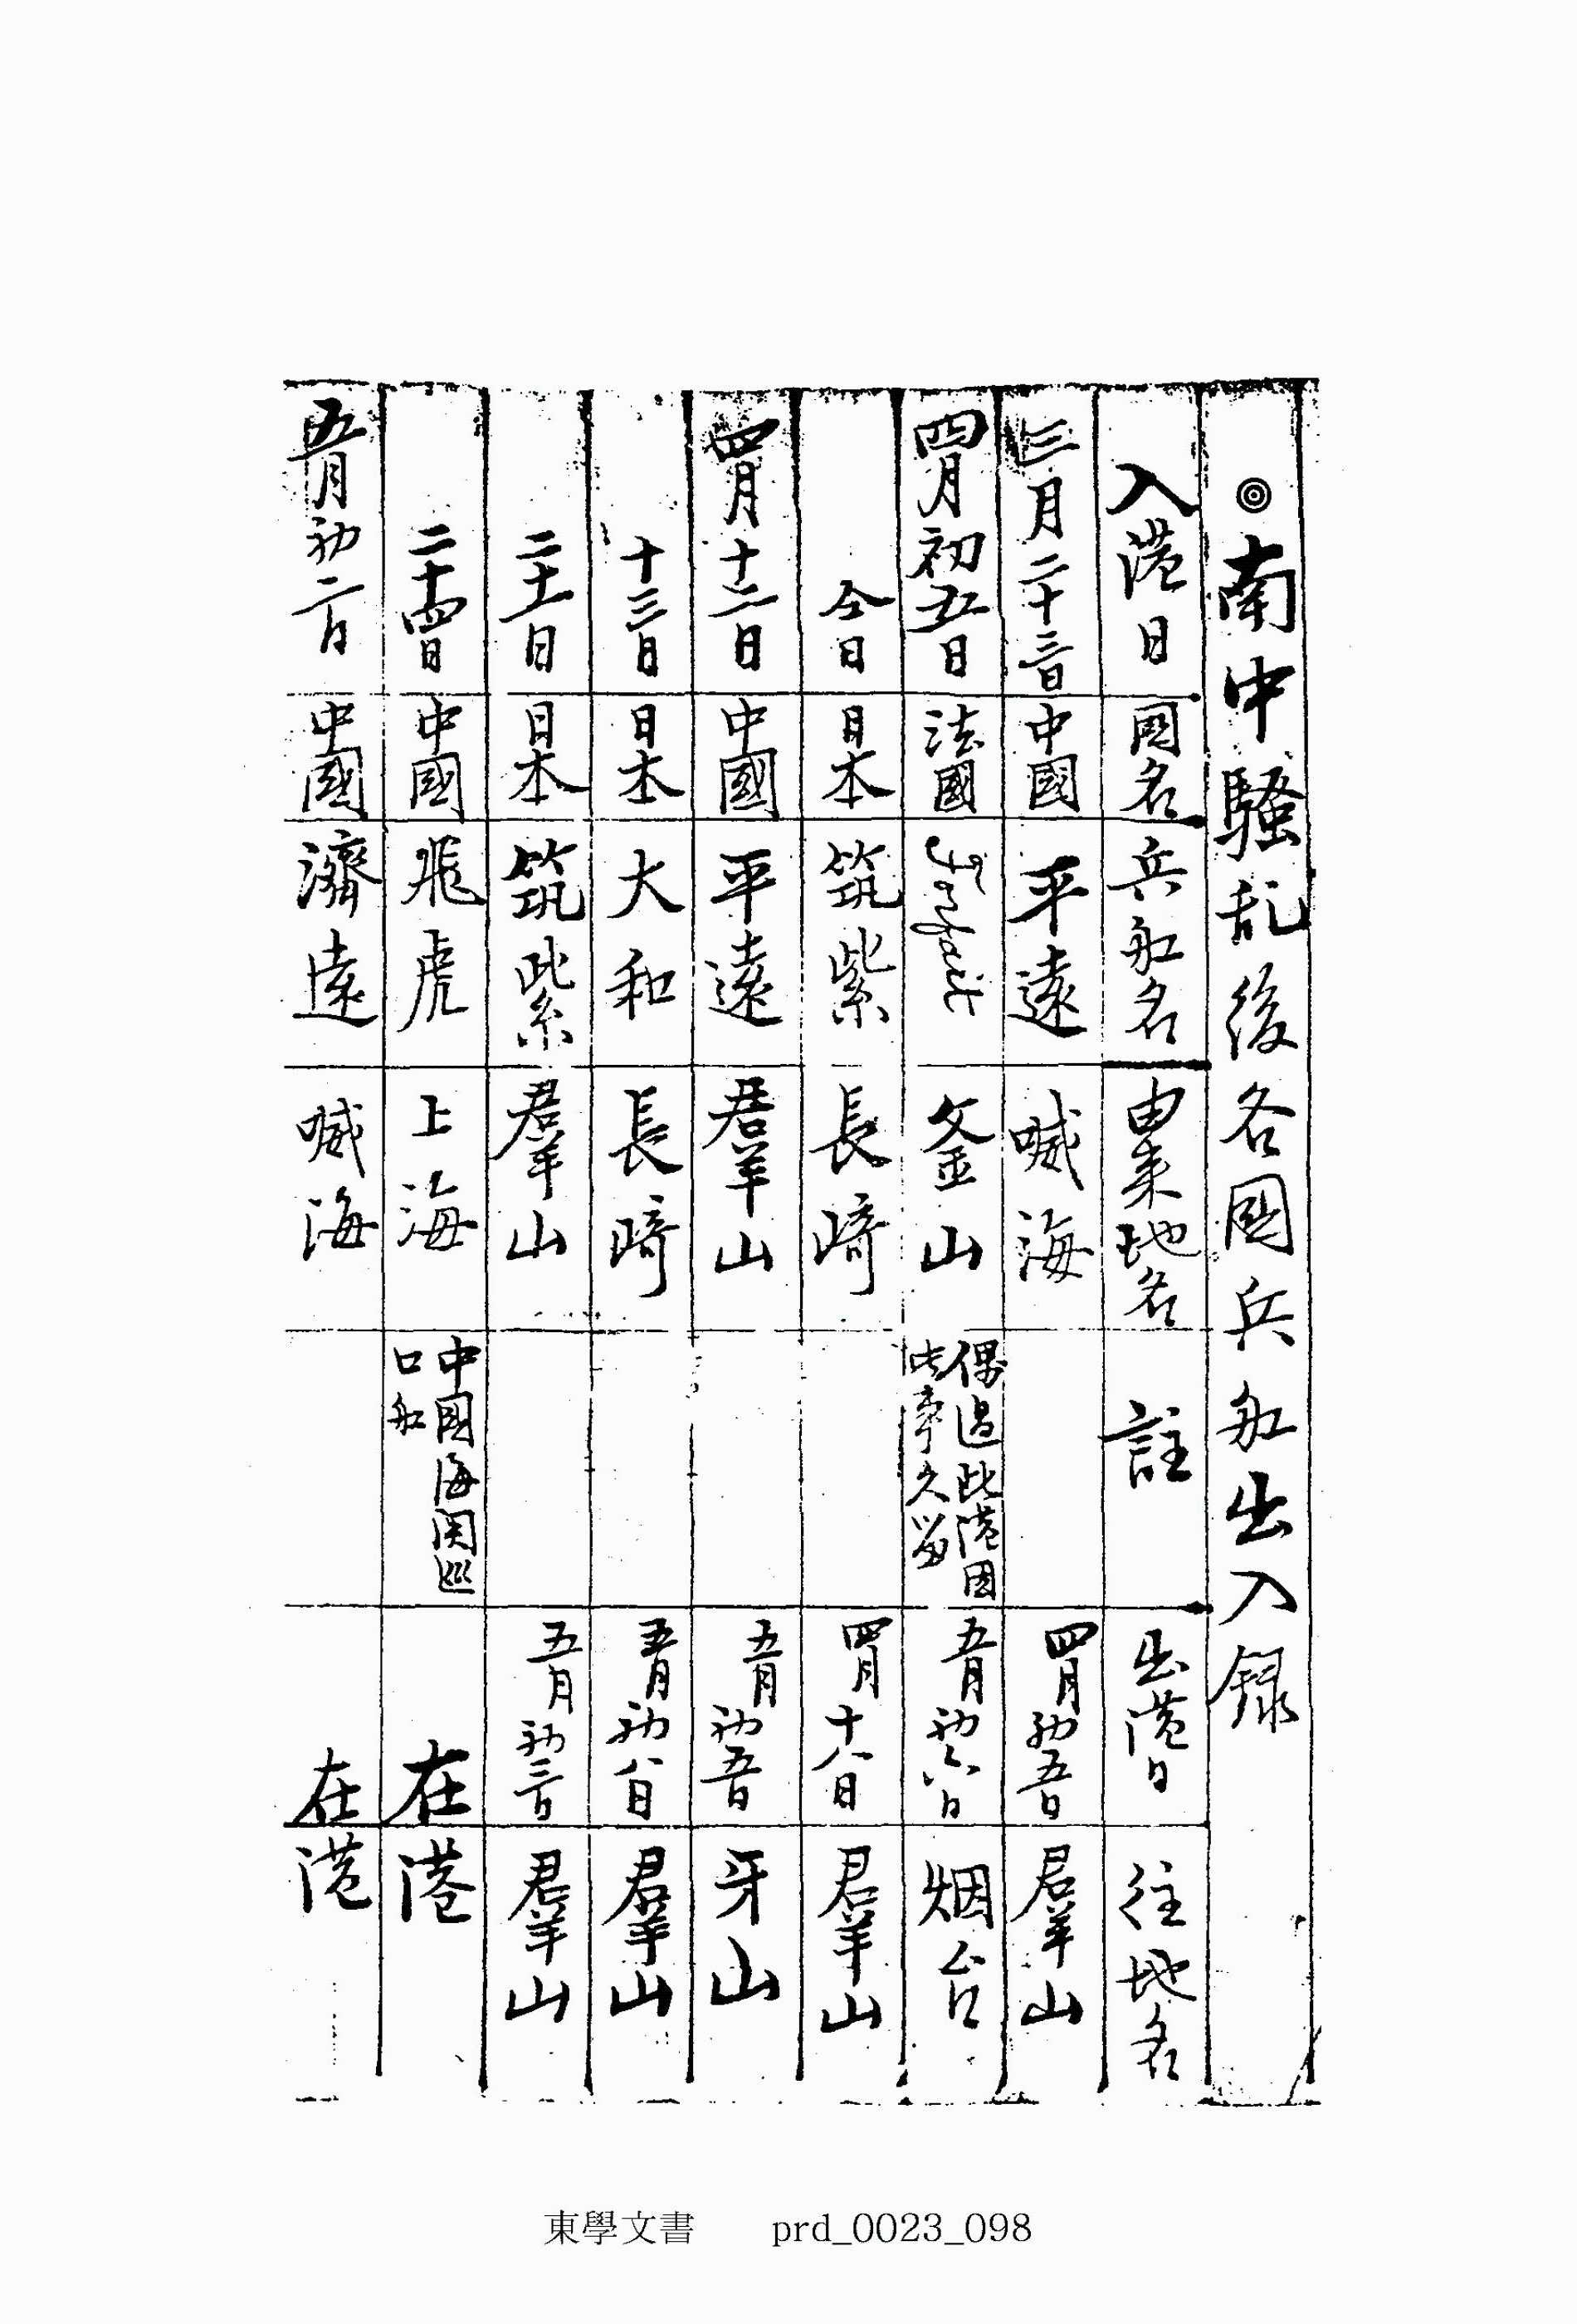 ◎南中騷乱後各國兵舩出入録
入港日 國名 兵舩名 由来地名 註 出港日 往地名
三月二十三日 中國 平遠 喊海 四月初五日 羣山
四月初五日 法國 釜山 偶過此港因此事久留 五月初六日 烟台
仝日 日本 筑紫 長崎 四月十八日 羣山
四月十二日 中國 平遠 羣山 五月初五日 牙山
十三日 日本 大和 長崎 五月初八日 羣山
二十一日 日本 筑紫 羣山 五月初三日 羣山
二十四日 中國 飛虎 上海 中國海関巡口舩 在港
五月初二日 中國 濟遠 喊海 在港
東學文書 prd_0023_098